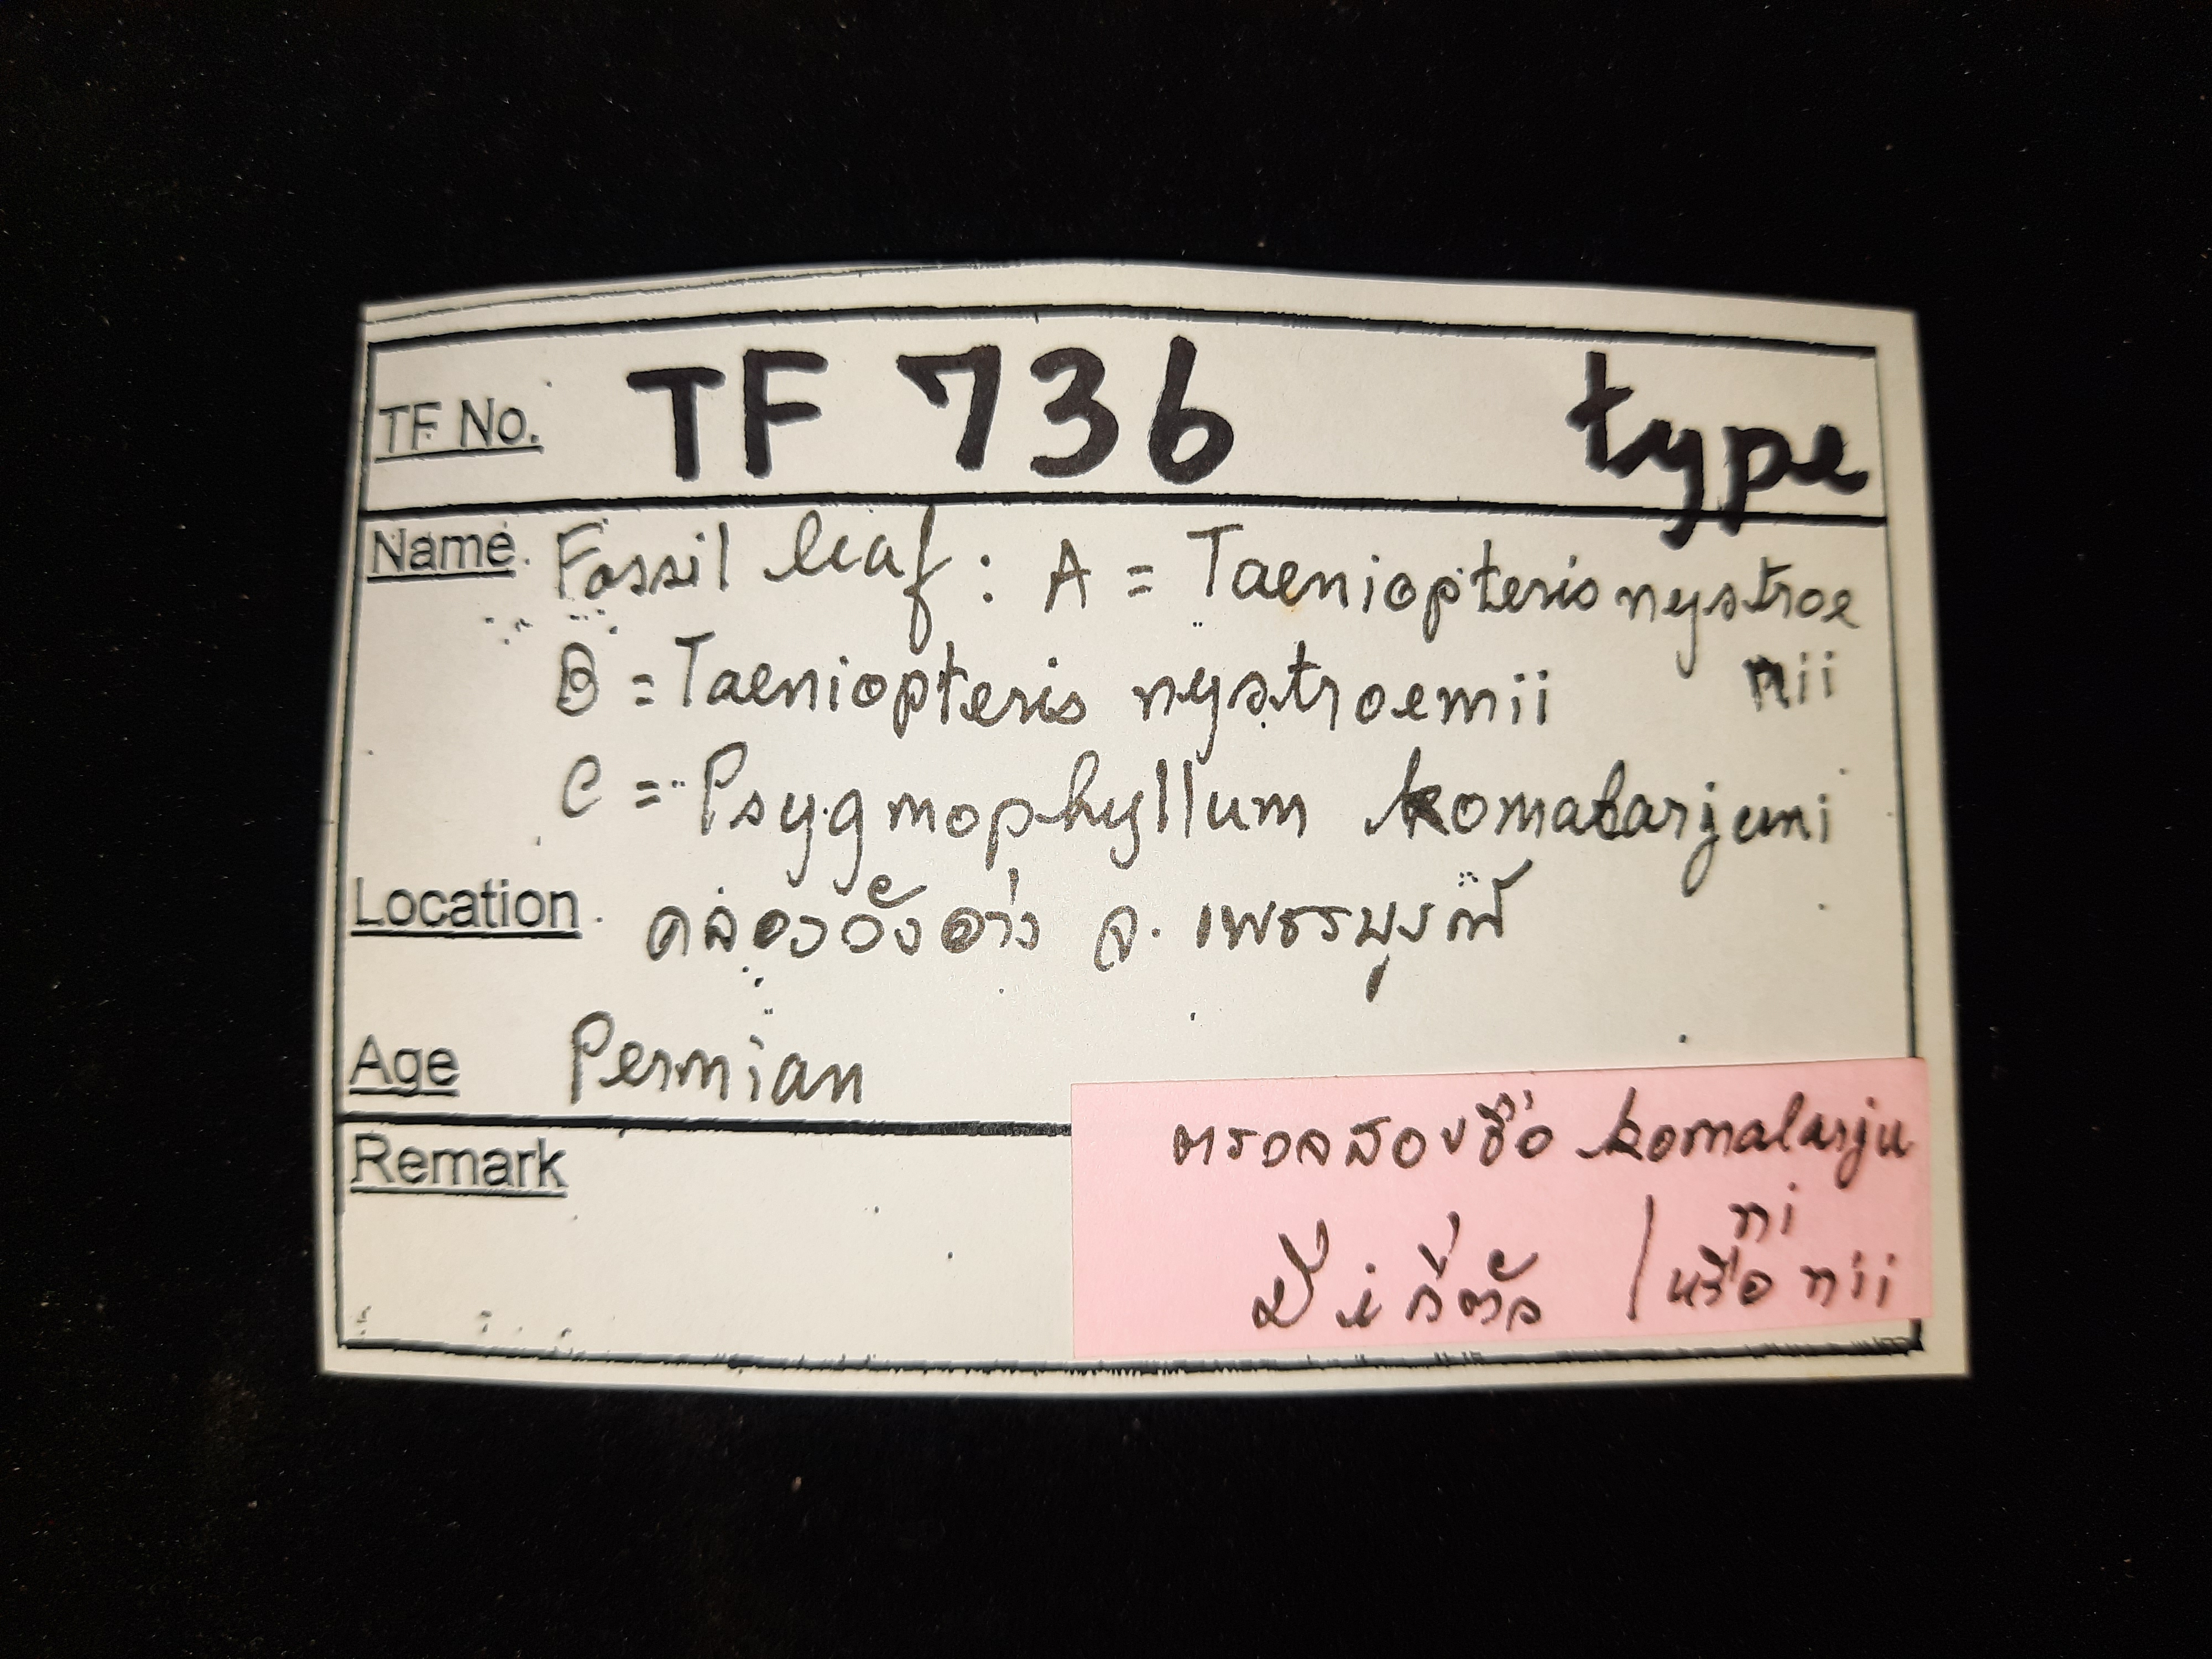 TF No. TF 736 type
Name. Fossil leaf : A = Taeniopteris nystroe
mii
B = Taeniopteris nystroemii
C = Psygmophyllum komalarjuni
Location. คลองวังอ่าง จ. เพชรบูรณ์
Age Permian
Remark
ตรวจสอบชื่อ komalarju
ni
มี i กี่ตัว / หรือ nii